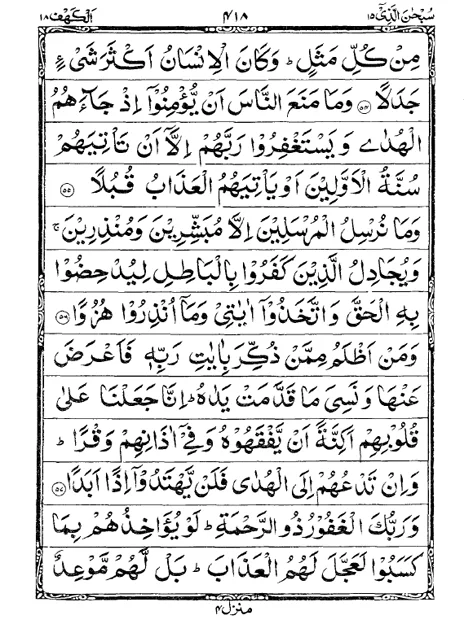 سُبْحٰنَ الَّذِیْۤ ١٥ ٤١٨ اَلْكَهْف ١٨
مِنْ كُلِّ مَثَلٍ ؕ وَكَانَ الْاِنْسَانُ اَكْثَرَ شَیْءٍ
جَدَلًا ۝٥٤ وَمَا مَنَعَ النَّاسَ اَنْ یُّؤْمِنُوْۤا اِذْ جَآءَهُمُ
الْهُدٰى وَیَسْتَغْفِرُوْا رَبَّهُمْ اِلَّاۤ اَنْ تَاْتِیَهُمْ
سُنَّةُ الْاَوَّلِیْنَ اَوْ یَاْتِیَهُمُ الْعَذَابُ قُبُلًا ۝٥٥
وَمَا نُرْسِلُ الْمُرْسَلِیْنَ اِلَّا مُبَشِّرِیْنَ وَمُنْذِرِیْنَ ۚ
وَیُجَادِلُ الَّذِیْنَ كَفَرُوْا بِالْبَاطِلِ لِیُدْحِضُوْا
بِهِ الْحَقَّ وَاتَّخَذُوْۤا اٰیٰتِیْ وَمَاۤ اُنْذِرُوْا هُزُوًا ۝٥٦
وَمَنْ اَظْلَمُ مِمَّنْ ذُكِّرَ بِاٰیٰتِ رَبِّهٖ فَاَعْرَضَ
عَنْهَا وَنَسِیَ مَا قَدَّمَتْ یَدٰهُ ؕ اِنَّا جَعَلْنَا عَلٰى
قُلُوْبِهِمْ اَكِنَّةً اَنْ یَّفْقَهُوْهُ وَفِیْۤ اٰذَانِهِمْ وَقْرًا ؕ
وَاِنْ تَدْعُهُمْ اِلَى الْهُدٰى فَلَنْ یَّهْتَدُوْۤا اِذًا اَبَدًا ۝٥٧
وَرَبُّكَ الْغَفُوْرُ ذُو الرَّحْمَةِ ؕ لَوْ یُؤَاخِذُهُمْ بِمَا
كَسَبُوْا لَعَجَّلَ لَهُمُ الْعَذَابَ ؕ بَلْ لَّهُمْ مَّوْعِدٌ
منزل ٤